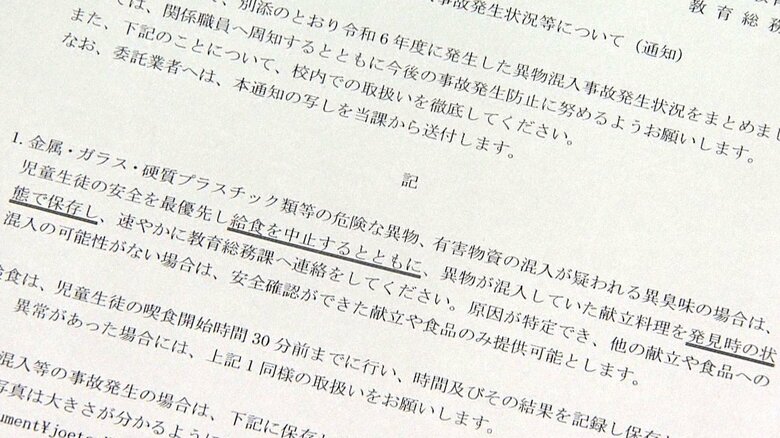 教育総務
事故発生状況等について（通知）
、別添のとおり令和６年度に発生した異物混入事故発生状況をまとめまし
は、関係職員へ周知するとともに今後の事故発生防止に努めるようお願いします。
また、下記のことについて、校内での取扱いを徹底してください。
なお、委託業者へは、本通知の写しを当課から送付します。
記
1. 金属・ガラス・硬質プラスチック類等の危険な異物、有害物資の混入が疑われる異臭味の場合は、
児童生徒の安全を最優先し給食を中止するとともに、異物が混入していた献立料理を発見時の状
態で保存し、速やかに教育総務課へ連絡をしてください。原因が特定でき、他の献立や食品への
混入の可能性がない場合は、安全確認ができた献立や食品のみ提供可能とします。
食は、児童生徒の喫食開始時間30分前までに行い、時間及びその結果を記録し保存
異常があった場合には、上記１同様の取扱いをお願いします。
混入等の事故発生の場合は、下記に保存
写真は大きさが分かるように
ument¥joet